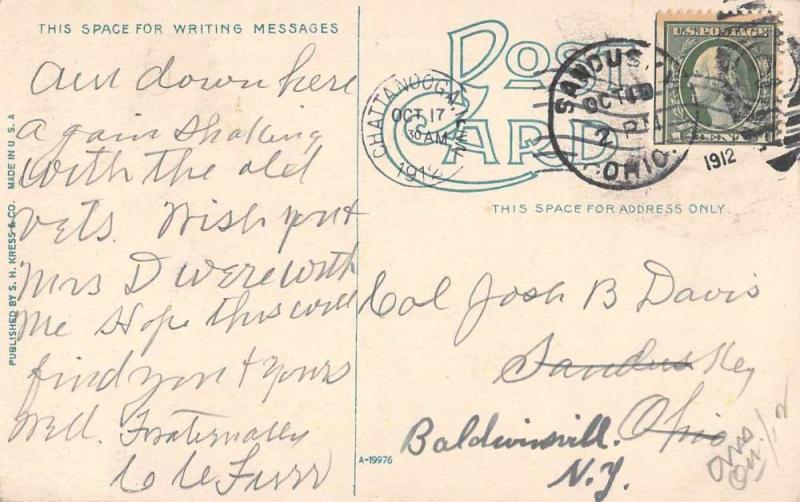 THIS SPACE FOR WRITING MESSAGES
Am down here
again shaking
with the old
vets. Wish you +
Mrs D were with
me Hope this will
find you + yours
well. Fraternally
C C
PUBLISHED BY S. H. KRESS & CO. MADE IN U. S. A
POST CARD
CHATTANOOGA TENN
OCT 17
30 AM
1912
SANDUS
OCT
2 P
OHIO.
1912
U.S. POSTAGE
1 CENT 1
THIS SPACE FOR ADDRESS ONLY.
Col Josh B Davis
Sandusky
Ohio
Baldwinsvill.
N.Y.
A-19976
Ans